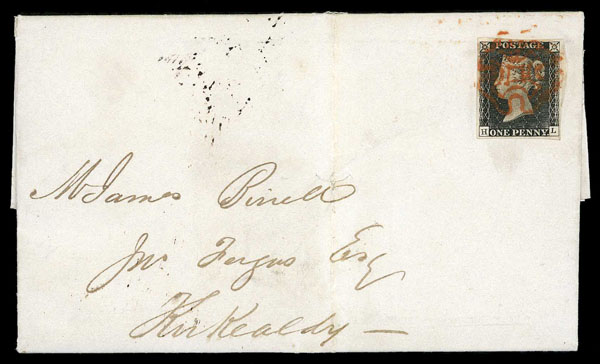 POSTAGE
H ONE PENNY. L
Mr James Birrell
Jno Fergus Esq
Kirkcaldy —